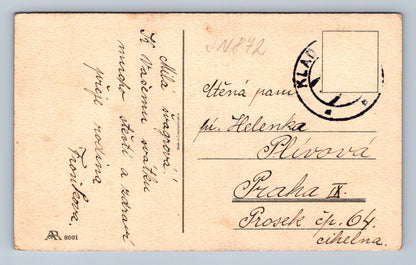 Milá švagrová!
K Vašemu svátku
mnoho štěstí a zdraví
přeje rodina
8001
JN872
KLAD
Ctěná paní
pí. Helenka
Plívová
Praha IX.
Prosek čp. 64.
cihelna.